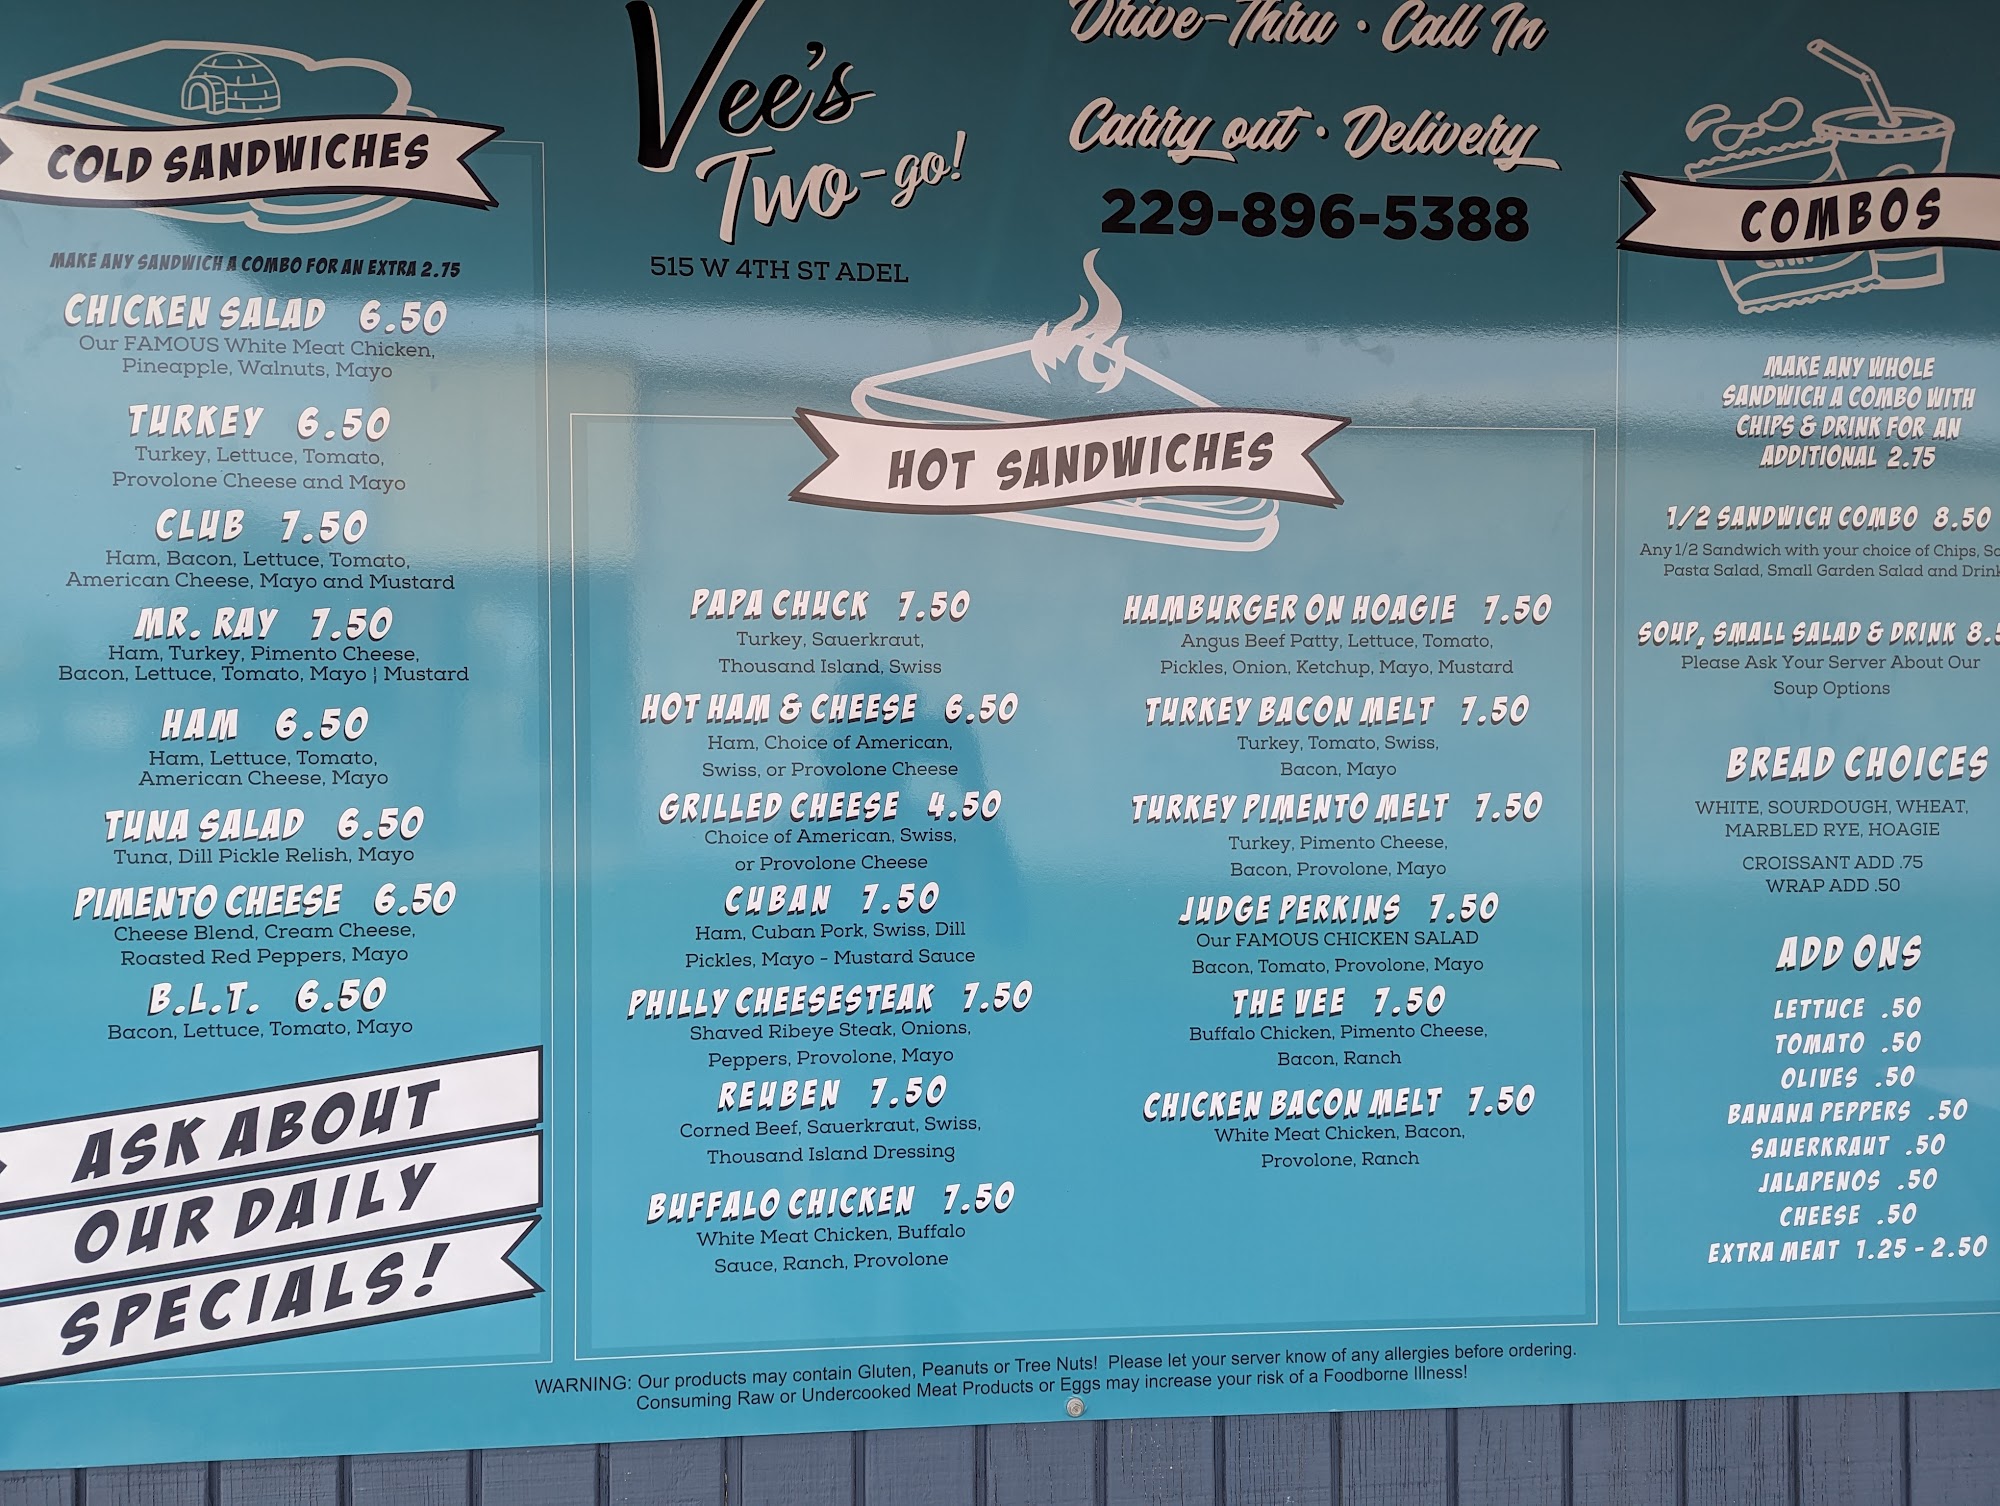 Vee's
Two-go!
515 W 4TH ST ADEL
Drive-Thru · Call In
Carry out · Delivery
229-896-5388
COLD SANDWICHES
MAKE ANY SANDWICH A COMBO FOR AN EXTRA 2.75
CHICKEN SALAD 6.50
Our FAMOUS White Meat Chicken,
Pineapple, Walnuts, Mayo
TURKEY 6.50
Turkey, Lettuce, Tomato,
Provolone Cheese and Mayo
CLUB 7.50
Ham, Bacon, Lettuce, Tomato,
American Cheese, Mayo and Mustard
MR. RAY 7.50
Ham, Turkey, Pimento Cheese,
Bacon, Lettuce, Tomato, Mayo ¦ Mustard
HAM 6.50
Ham, Lettuce, Tomato,
American Cheese, Mayo
TUNA SALAD 6.50
Tuna, Dill Pickle Relish, Mayo
PIMENTO CHEESE 6.50
Cheese Blend, Cream Cheese,
Roasted Red Peppers, Mayo
B.L.T. 6.50
Bacon, Lettuce, Tomato, Mayo
ASK ABOUT
OUR DAILY
SPECIALS!
HOT SANDWICHES
PAPA CHUCK 7.50
Turkey, Sauerkraut,
Thousand Island, Swiss
HOT HAM & CHEESE 6.50
Ham, Choice of American,
Swiss, or Provolone Cheese
GRILLED CHEESE 4.50
Choice of American, Swiss,
or Provolone Cheese
CUBAN 7.50
Ham, Cuban Pork, Swiss, Dill
Pickles, Mayo - Mustard Sauce
PHILLY CHEESESTEAK 7.50
Shaved Ribeye Steak, Onions,
Peppers, Provolone, Mayo
REUBEN 7.50
Corned Beef, Sauerkraut, Swiss,
Thousand Island Dressing
BUFFALO CHICKEN 7.50
White Meat Chicken, Buffalo
Sauce, Ranch, Provolone
HAMBURGER ON HOAGIE 7.50
Angus Beef Patty, Lettuce, Tomato,
Pickles, Onion, Ketchup, Mayo, Mustard
TURKEY BACON MELT 7.50
Turkey, Tomato, Swiss,
Bacon, Mayo
TURKEY PIMENTO MELT 7.50
Turkey, Pimento Cheese,
Bacon, Provolone, Mayo
JUDGE PERKINS 7.50
Our FAMOUS CHICKEN SALAD
Bacon, Tomato, Provolone, Mayo
THE VEE 7.50
Buffalo Chicken, Pimento Cheese,
Bacon, Ranch
CHICKEN BACON MELT 7.50
White Meat Chicken, Bacon,
Provolone, Ranch
COMBOS
MAKE ANY WHOLE
SANDWICH A COMBO WITH
CHIPS & DRINK FOR AN
ADDITIONAL 2.75
1/2 SANDWICH COMBO 8.50
Any 1/2 Sandwich with your choice of Chips,
Pasta Salad, Small Garden Salad and Drink
SOUP, SMALL SALAD & DRINK
Please Ask Your Server About Our
Soup Options
BREAD CHOICES
WHITE, SOURDOUGH, WHEAT,
MARBLED RYE, HOAGIE
CROISSANT ADD .75
WRAP ADD .50
ADD ONS
LETTUCE .50
TOMATO .50
OLIVES .50
BANANA PEPPERS .50
SAUERKRAUT .50
JALAPENOS .50
CHEESE .50
EXTRA MEAT 1.25 - 2.50
WARNING: Our products may contain Gluten, Peanuts or Tree Nuts! Please let your server know of any allergies before ordering.
Consuming Raw or Undercooked Meat Products or Eggs may increase your risk of a Foodborne Illness!